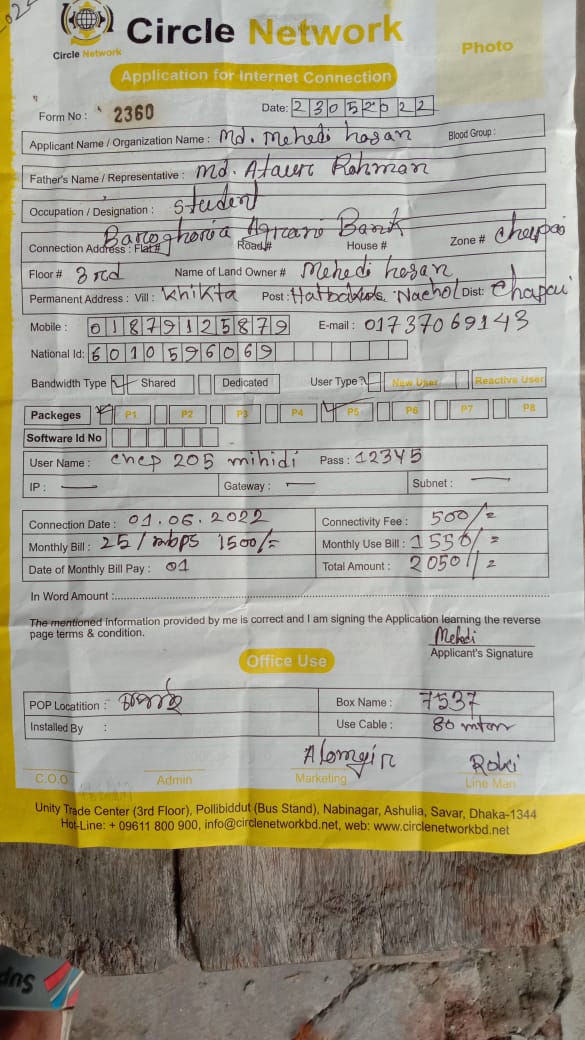 Circle Network
Circle Network
Photo
Application for Internet Connection
Form No : 2360 Date: 23052022
Applicant Name / Organization Name : Md. Mehedi hasan Blood Group :
Father's Name / Representative : Md. Ataur Rahman
Occupation / Designation : Student
Connection Address : Flat# Baroghoria Agrani Bank Road# House # Zone # Chapai
Floor # 3rd Name of Land Owner # Mehedi hasan
Permanent Address : Vill : Khikta Post : Nachol Dist: Chapai
Mobile : 01879125879 E-mail : 01737069143
National Id: 6010596069
Bandwidth Type Shared Dedicated User Type New User Reactive User
Packeges P1 P2 P3 P4 P5 P6 P7 P8
Software Id No
User Name : chcp 205 mihidi Pass : 12345
IP : — Gateway : — Subnet : —
Connection Date : 01.06.2022 Connectivity Fee : 500/=
Monthly Bill : 25/mbps 1500/= Monthly Use Bill : 1550/=
Date of Monthly Bill Pay : 01 Total Amount : 2050/=
In Word Amount :
The mentioned information provided by me is correct and I am signing the Application learning the reverse
page terms & condition.
Mehedi
Applicant's Signature
Office Use
POP Locatition : Box Name : 7537
Installed By : Use Cable : 80
Alomgir Roki
C.O.O Admin Marketing Line Man
Unity Trade Center (3rd Floor), Pollibiddut (Bus Stand), Nabinagar, Ashulia, Savar, Dhaka-1344
Hot-Line: + 09611 800 900, info@circlenetworkbd.net, web: www.circlenetworkbd.net